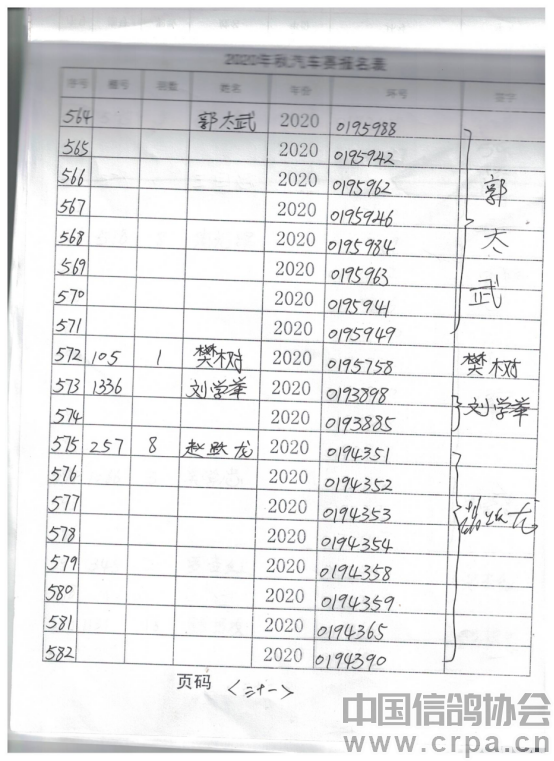 2020年秋汽车赛报名表
序号 棚号 羽数 姓名 年份 环号 签字
564 郭太武 2020 0195988
565 2020 0195942
566 2020 0195962 郭
567 2020 0195946
568 2020 0195984 太
569 2020 0195963
570 2020 0195941 武
571 2020 0195949
572 105 1 樊树 2020 0195758 樊树
573 1336 刘学举 2020 0193898 刘学举
574 2020 0193885
575 257 8 赵跃龙 2020 0194351
576 2020 0194352
577 2020 0194353
578 2020 0194354
579 2020 0194358
580 2020 0194359
581 2020 0194365
582 2020 0194390
页码 <三十一>
中国信鸽协会
www.crpa.cn